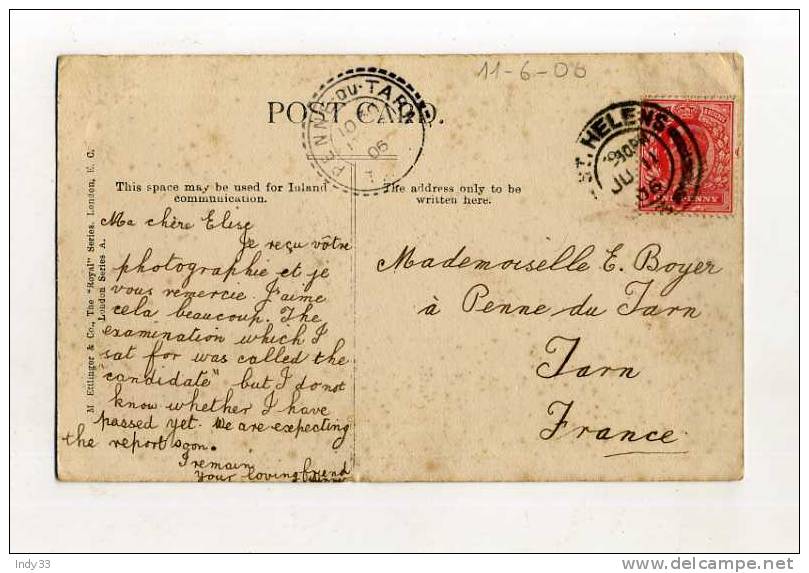 11-6-06
POST CARD.
PENNE-DU-TARN
10
06
ST. HELENS
JU 11
06
ONE PENNY
This space may be used for Inland
communication.
The address only to be
written here.
M. Ettlinger & Co., The "Royal" Series, London, E. C.
London Series A.
Ma chère Elise
Je reçu vôtre
photographie et je
vous remercie J'aime
cela beaucoup. The
examination which I
sat for was called the
"candidate" but I do not
know whether I have
passed yet. We are expecting
the report soon.
I remain
your loving friend
Mademoiselle E. Boyer
à Penne du Tarn
Tarn
France
Indy33
delcampe.net